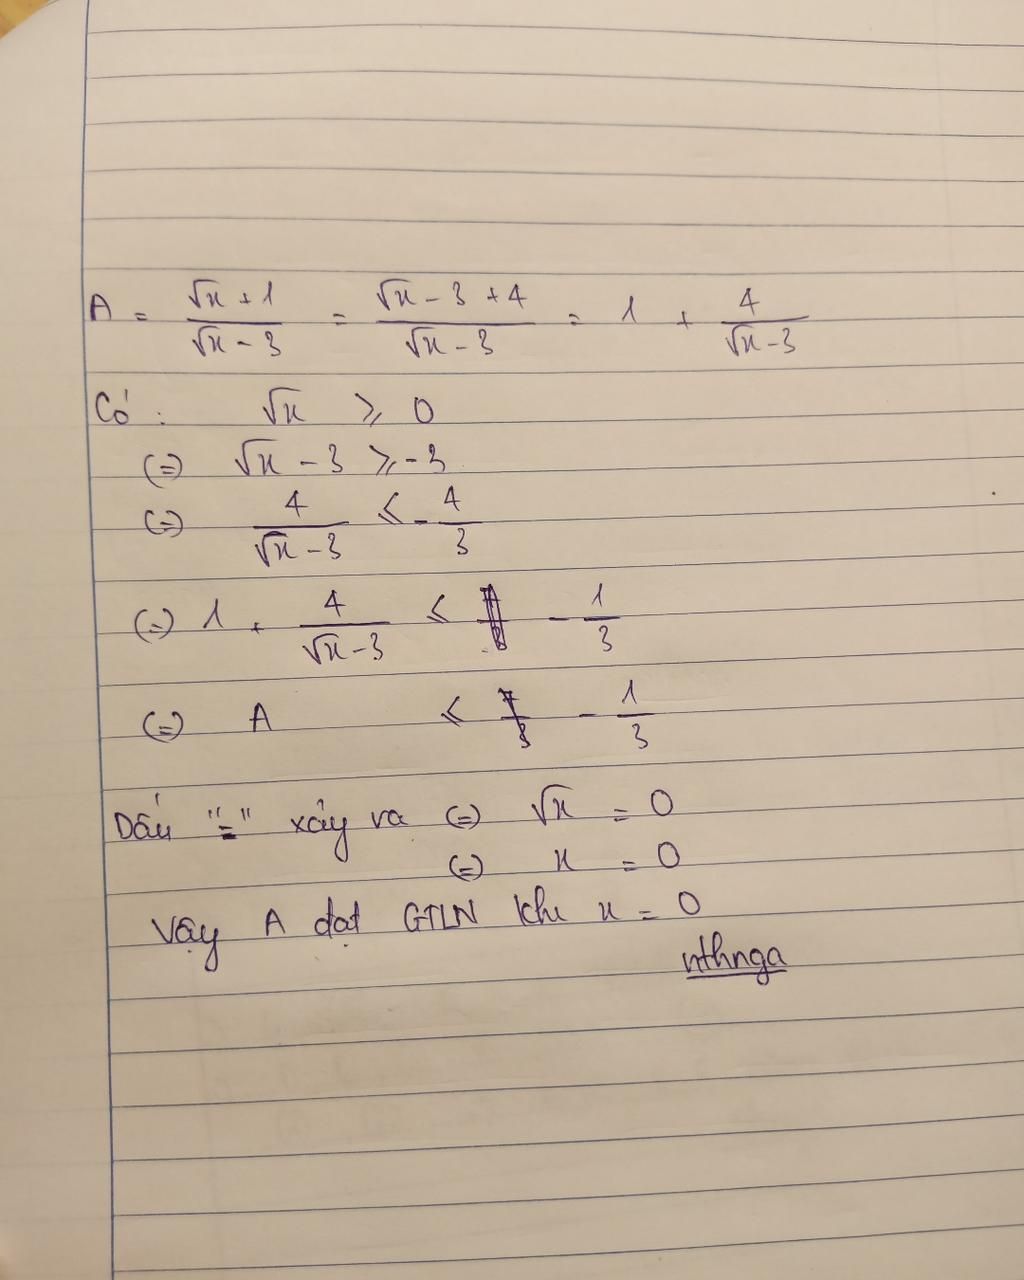 A = (√x + 1)/(√x - 3) = (√x - 3 + 4)/(√x - 3) = 1 + 4/(√x - 3)
Có : √x ⩾ 0
(=) √x - 3 ⩾ -3
(=) 4/(√x - 3) ⩽ -4/3
(=) 1 + 4/(√x - 3) ⩽ -1/3
(=) A ⩽ -1/3
Dấu "=" xảy ra (=) √x = 0
(=) x = 0
Vậy A đạt GTLN khi x = 0
nthnga